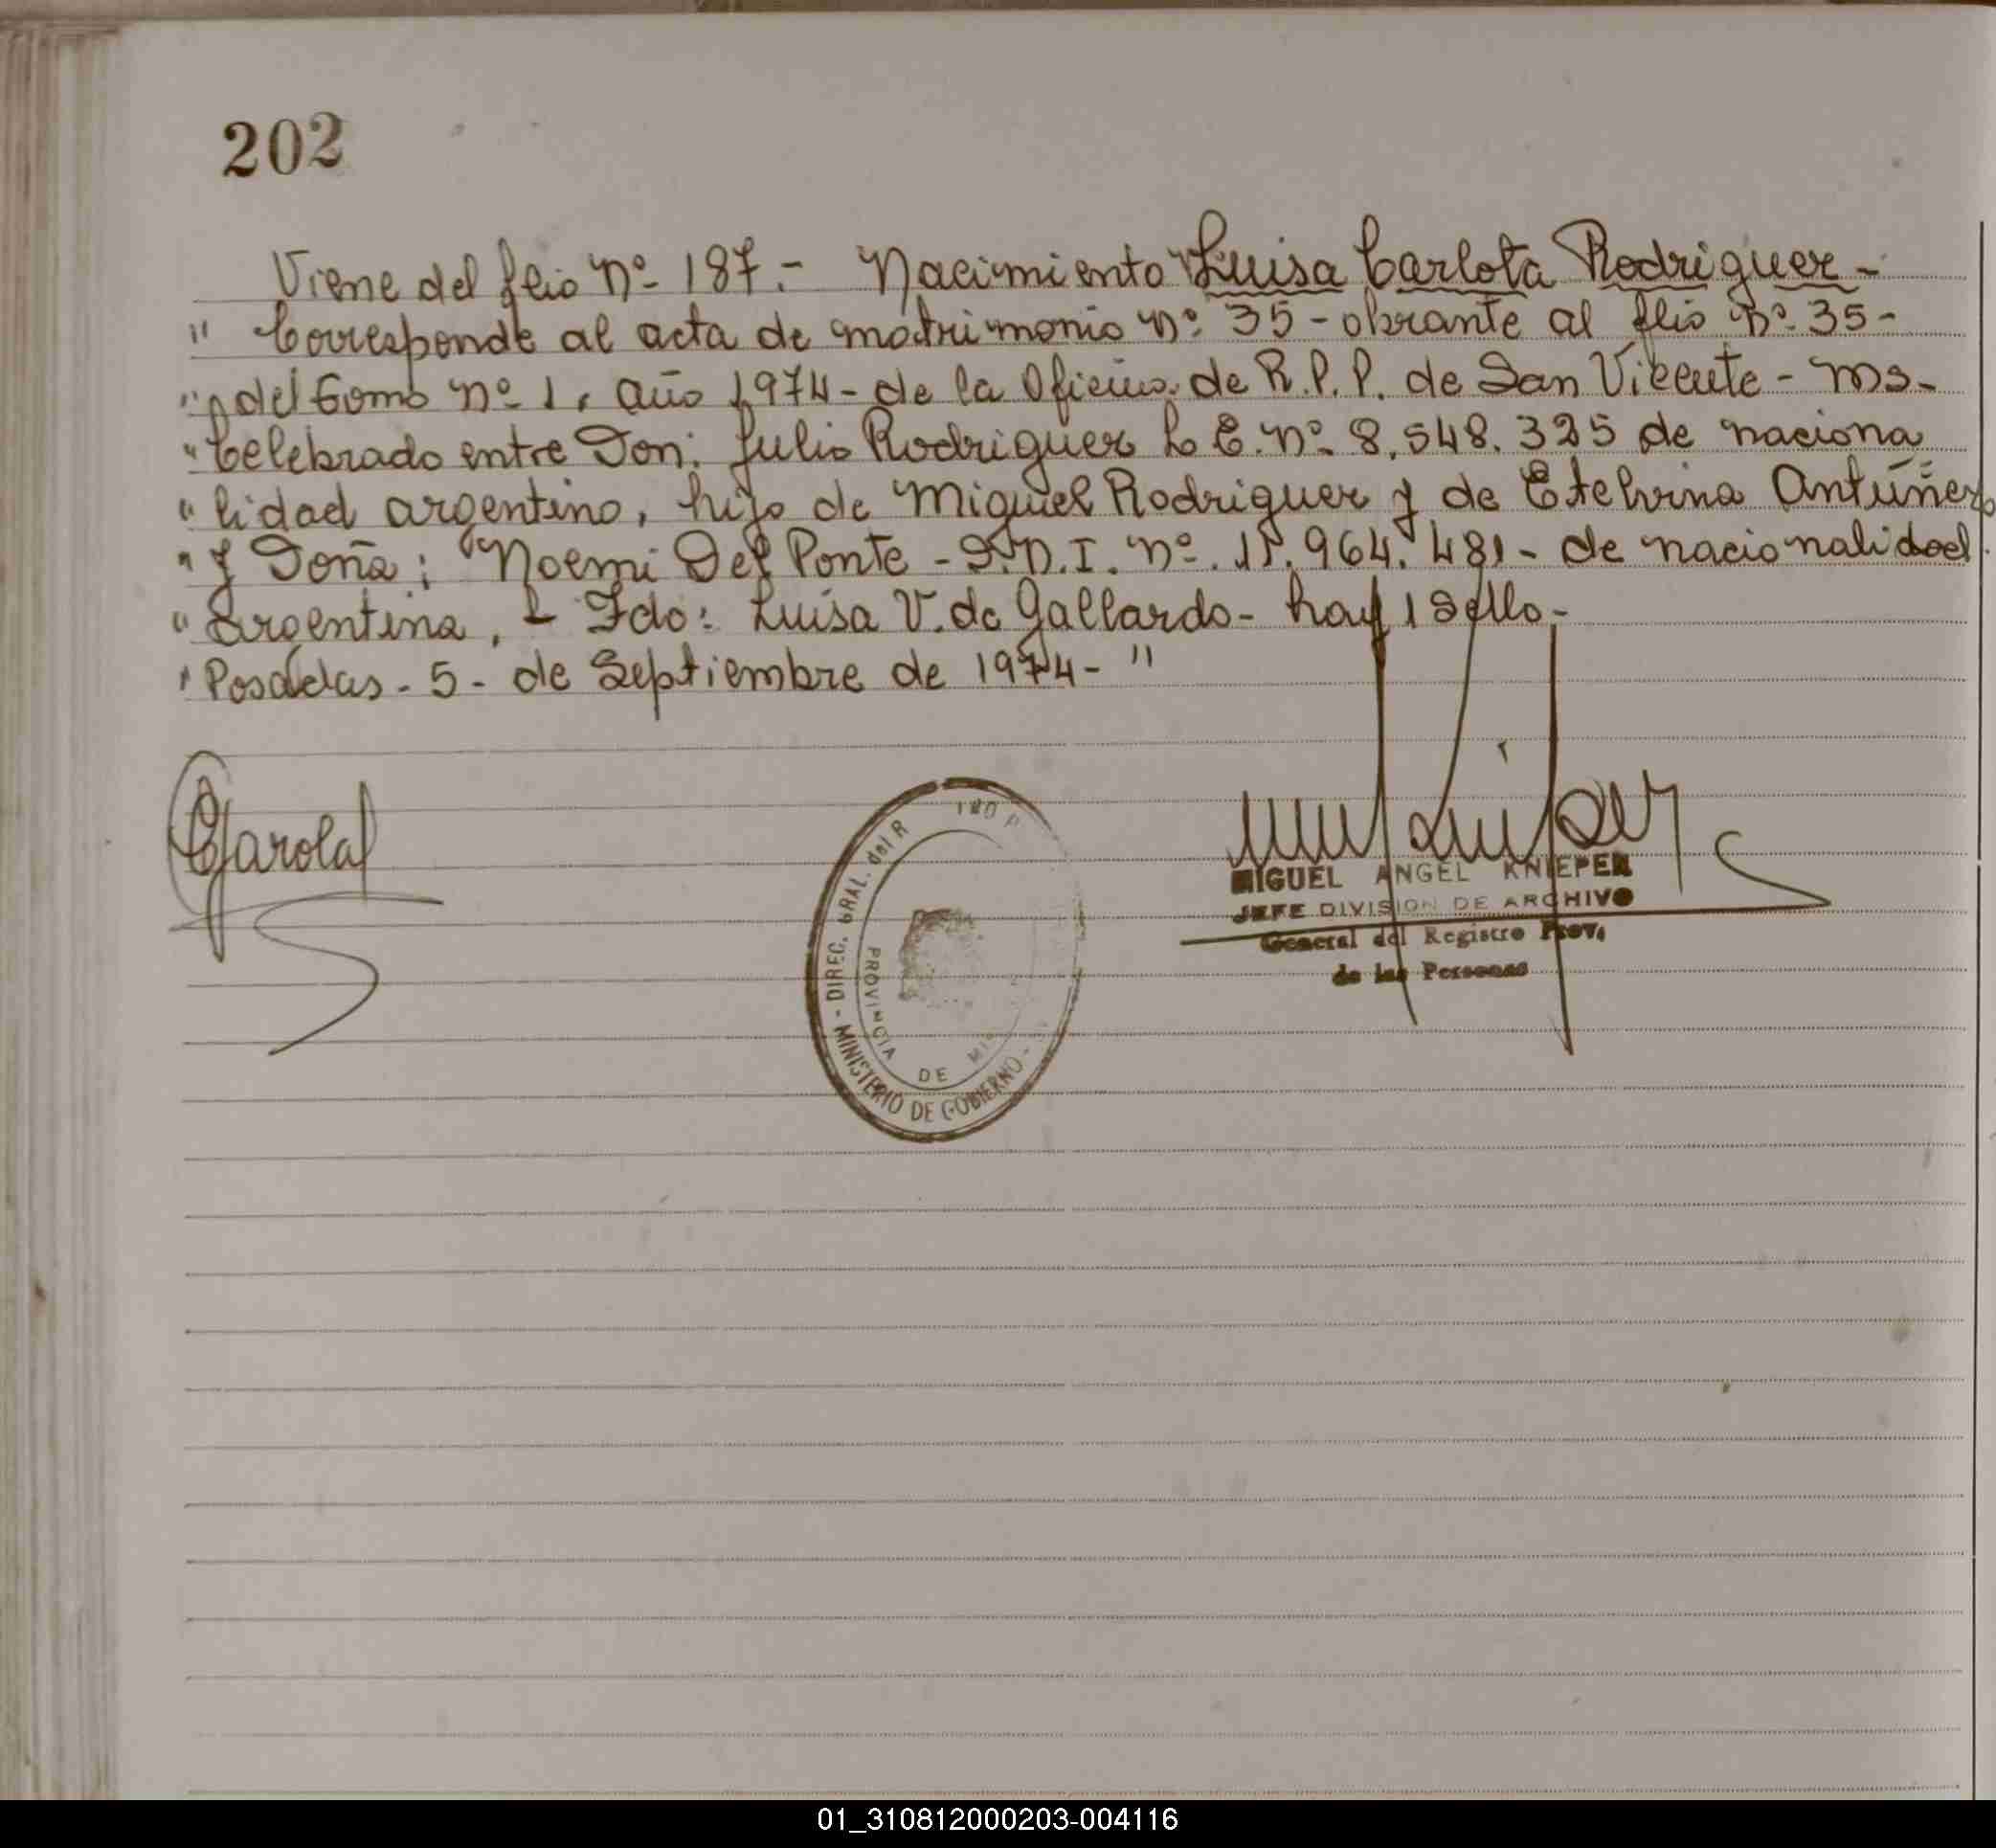 202
Viene del flio Nº 187.- Nacimiento Luisa Carlota Rodriguez -
" Corresponde al acta de matrimonio Nº 35 - obrante al flio Nº 35 -
" del Tomo Nº 1, año 1974 - de la Oficina de R.P.P. de San Vicente - Ms -
" Celebrado entre Don: Julio Rodriguez L E. Nº 8.548.325 de naciona
" lidad argentino, hijo de Miguel Rodriguez y de Etelvina Antúñez
" y Doña: Noemi Del Ponte - D.N.I. Nº. 11.964.481 - de nacionalidad
" Argentina, - Fdo: Luisa V. de Gallardo - hay 1 sello -
" Posadas - 5 - de Septiembre de 1974 - "
MINISTERIO DE GOBIERNO - DIREC. GRAL. del R
PROVINCIA DE
MIGUEL ANGEL KNIEPER
JEFE DIVISION DE ARCHIVO
General del Registro Prov.
de las Personas
01_310812000203-004116